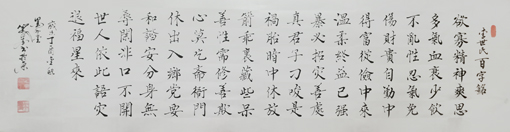 李世民百字銘
欲寡精神爽思
多氣血衰少飲
不亂性忍氣免
傷財貴自勤中
得富從儉中來
溫柔終益己强
暴必招災善處
真君子刁唆是
禍胎暗中休放
箭乖裏藏些呆
養性需修善欺
心莫吃齋衙門
休出入鄉党要
和諧安分身無
辱閑非口不開
世人依此語灾
退福星來